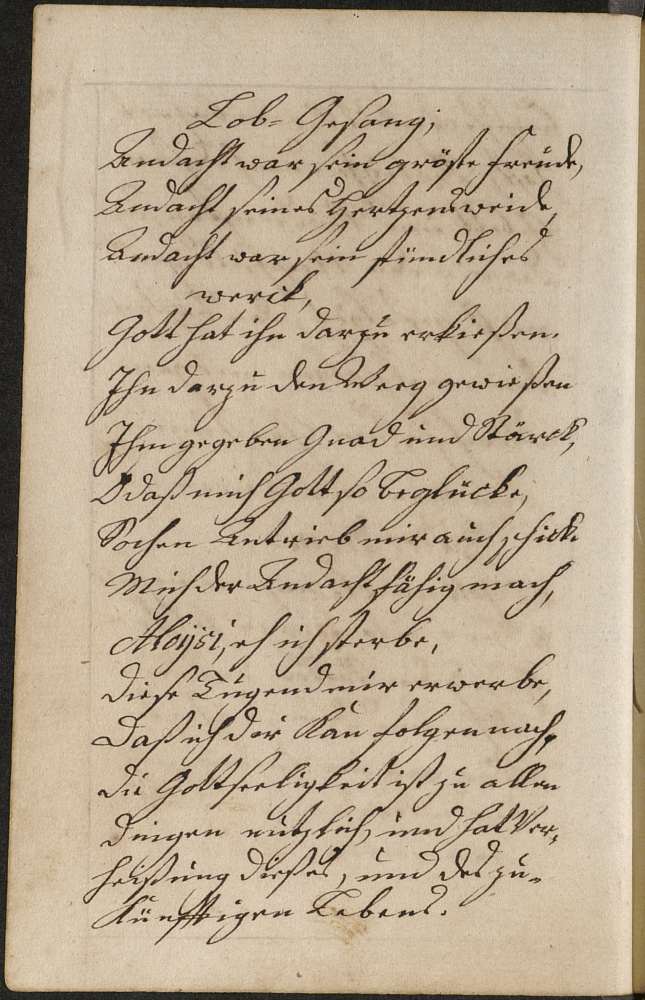 Lob- Gesang;
Andacht war sein gröste freude,
Andacht seines Hertzens weide,
Andacht war sein stündliches
werck,
Gott hat ihn darzu erkießen.
Ihn darzu den Weeg gewießen
Ihm gegeben Gnad und Stärck,
O daß mich Gott so beglücke,
Sochen Antrieb mir auch schicke
Mich der Andacht fähig mach,
Aloÿsi, eh ich sterbe,
Diese Tugend mir erwerbe,
Daß ich dir kan folgen nach.
Die Gottseeligkeit ist zu allen
Dingen nutzlich, und hat Ver-
heißung dieses, und des zu-
künfftigen Lebens.